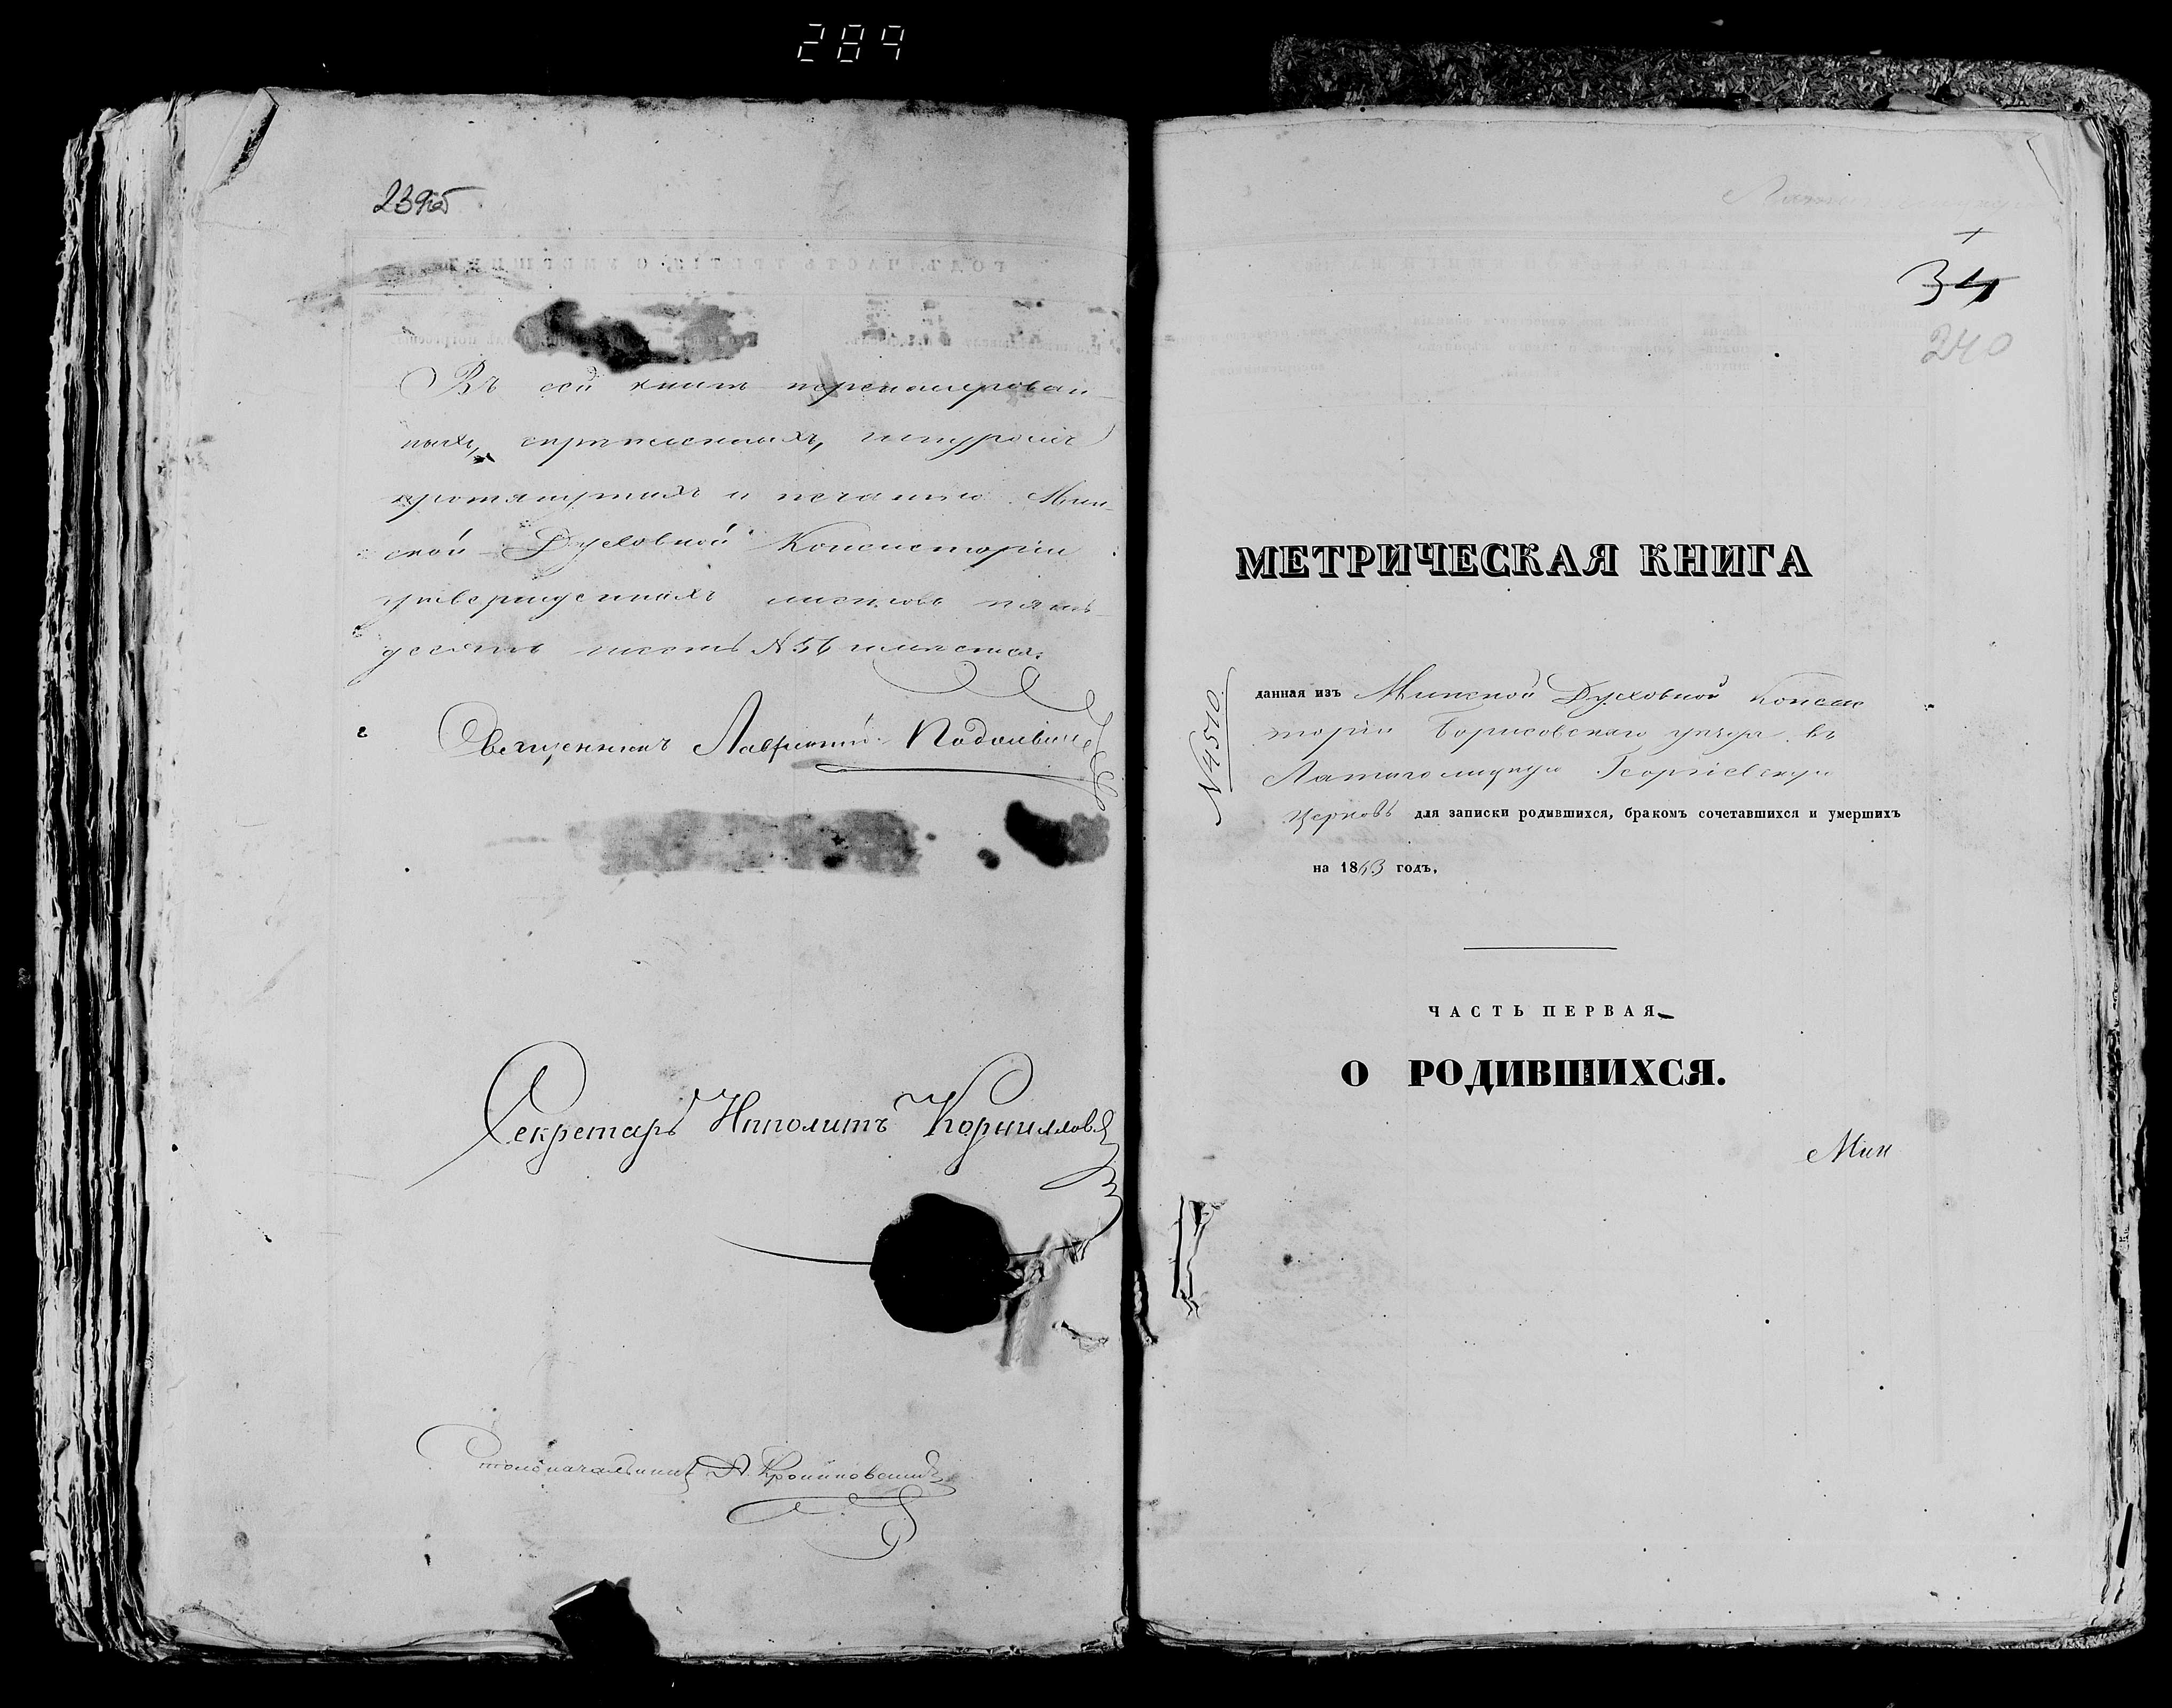 289
239об
Въ сей книгѣ перенумерован-
ныхъ, скрѣпленныхъ, шнуромъ
протянутыхъ и печатью Мин-
ской Духовной Консисторіи
утвержденныхъ листовъ пять-
десятъ шесть № 56 имѣется.
Священникъ Лаврентій
Секретарь Ипполитъ Корнилловъ
Столоначальникъ
34
240
МЕТРИЧЕСКАЯ КНИГА
№ 4510.
данная изъ Минской Духовной Консис
торіи Борисовскаго уѣзда въ
Латыголицкую Георгіевскую
Церковь для записки родившихся, бракомъ сочетавшихся и умершихъ
на 1863 годъ.
ЧАСТЬ ПЕРВАЯ
О РОДИВШИХСЯ.
Мин